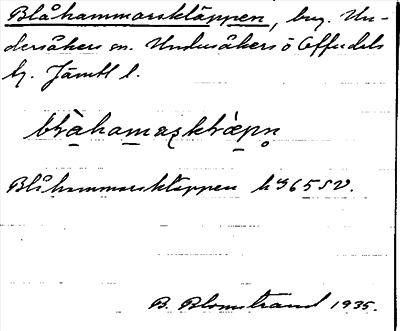 Blåhammarskläppen, berg. Un-
dersåkers sn. Undersåkers o Offerdals
tg. Jämtl l.
blåhamaʂklæpn̥
Blåhammarskläppen h 365 SV.
B. Blomstrand 1935.